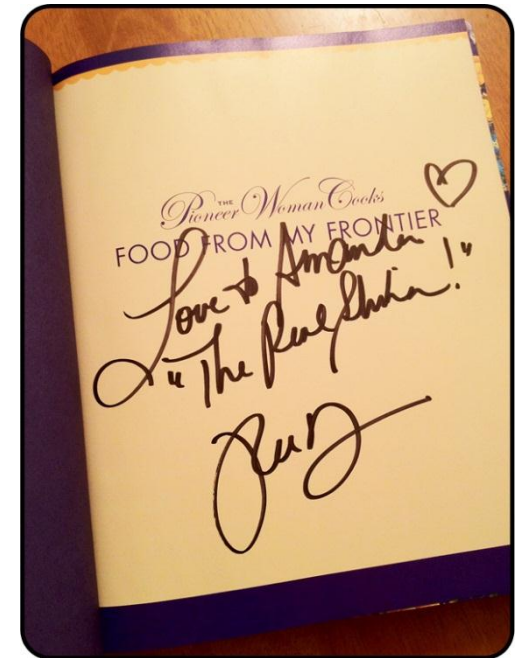 THE
Pioneer Woman Cooks
FOOD FROM MY FRONTIER
Love to Amanda
"The Real
!"
Ree D